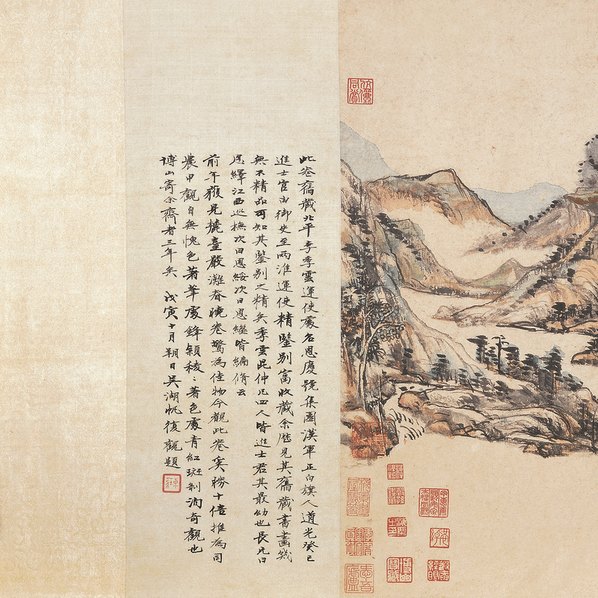 此卷舊藏北平李季雲運使名恩慶號集園漢軍正白旗人道光癸巳
進士官由御史至兩淮運使精鑒別富收藏余歷見其舊藏書畫幾
無不精品可知其鑒別之精矣季雲昆仲凡四人皆進士君其最幼也長兄曰
恩繹江西巡撫次曰恩綬次曰恩繼皆編修云
前年獲見麓臺嚴灘春曉卷驚為佳物今觀此卷奚勝十倍推為司
農甲觀自無愧色著筆處鋒穎稜:著色處青紅斑剝洵奇觀也
博山寄余齋者三年矣 戊寅十月朔日吳湖帆復觀題